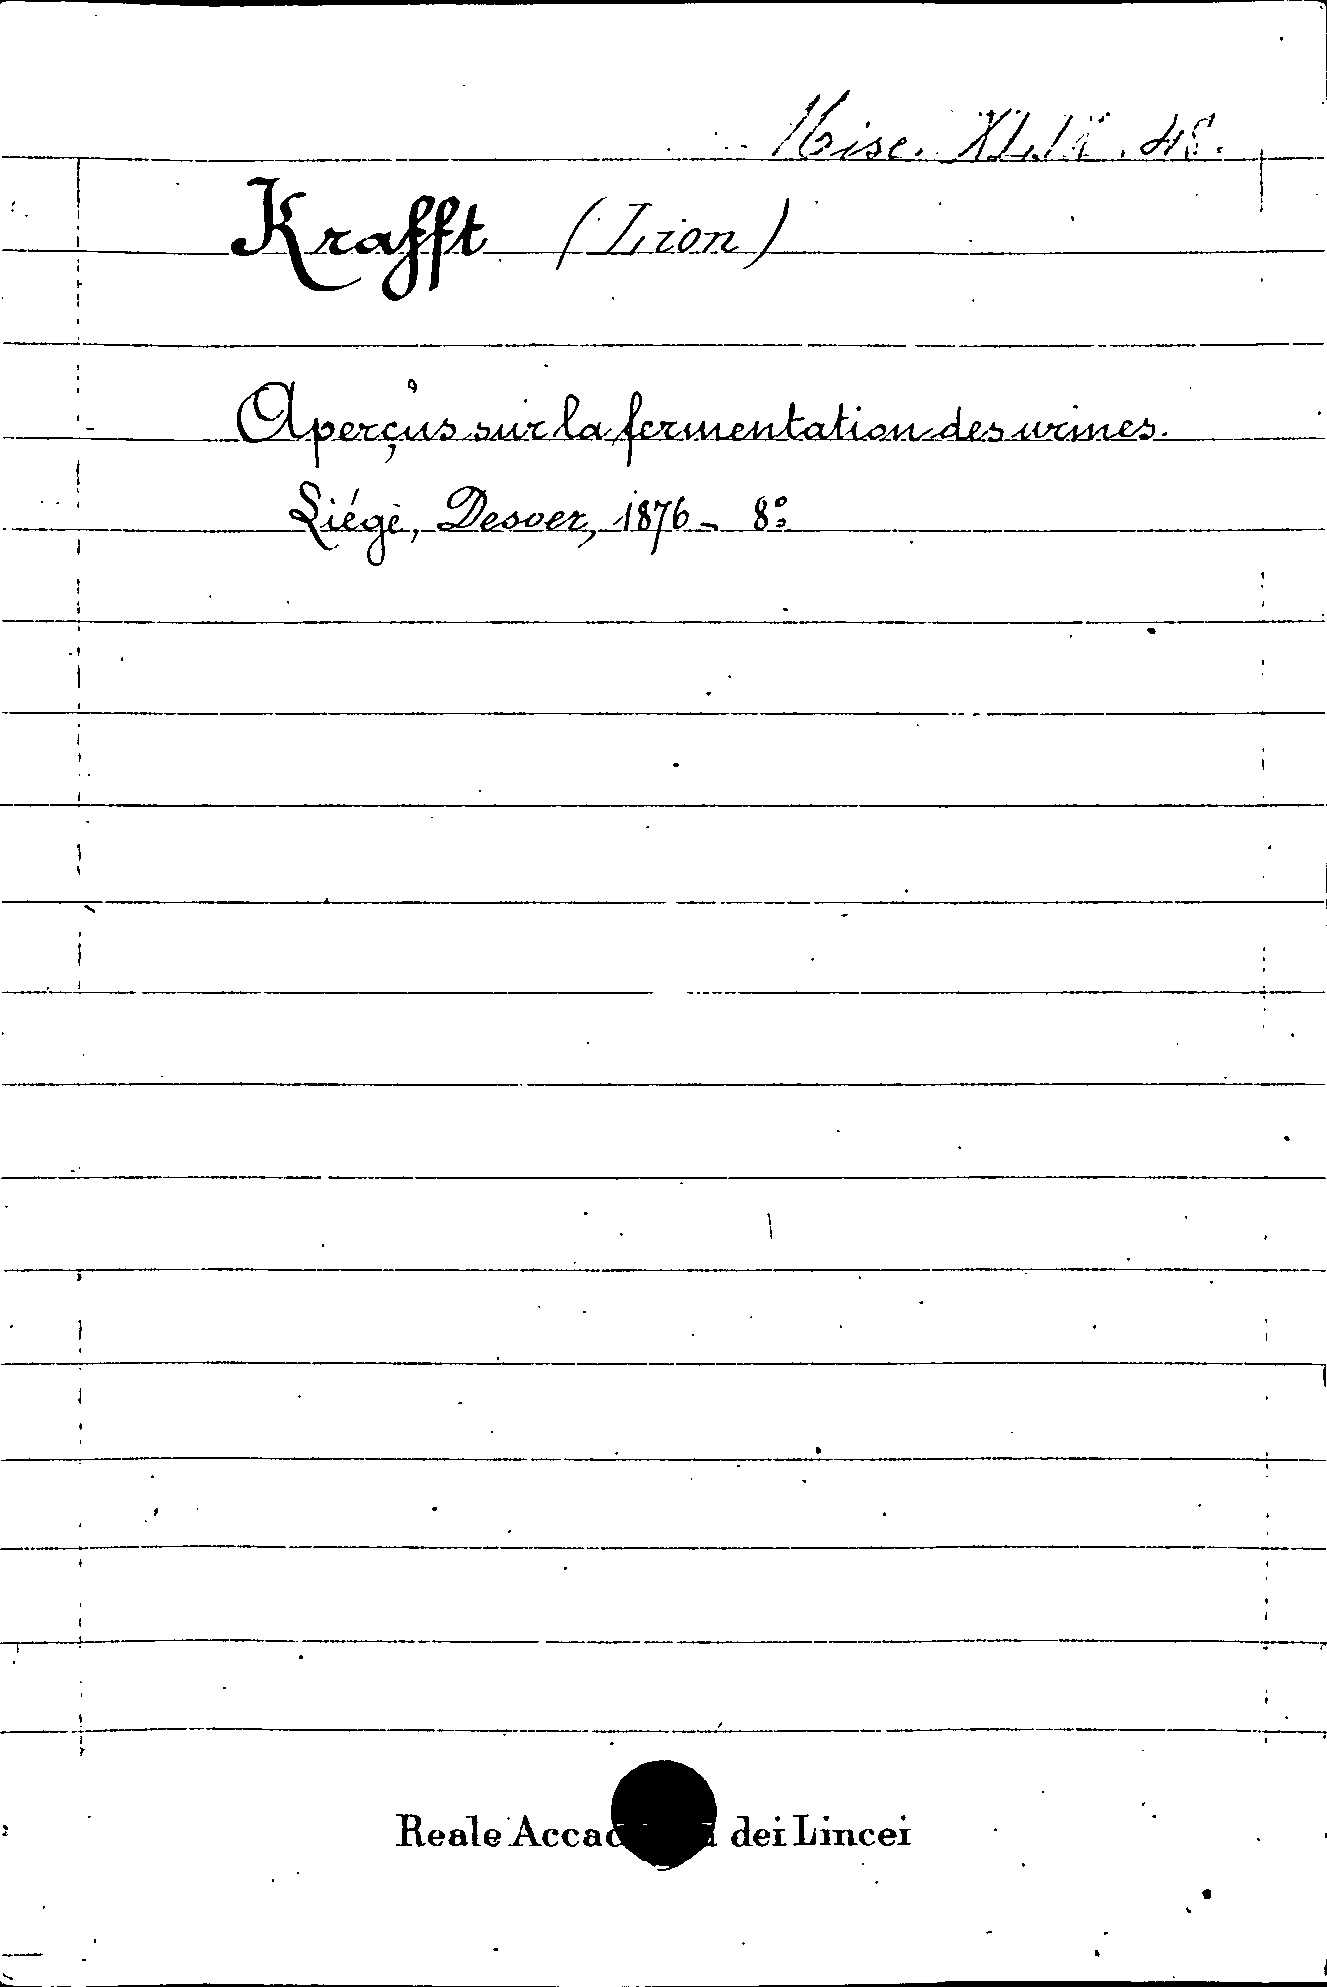 Misc. 48.
Krafft (Lion)
Aperçus sur la fermentation des urines.
Liége, Desoer, 1876 - 8º
Reale Accad dei Lincei